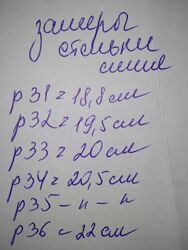 замеры
стельки
синие
р 31 = 18,8 см
р 32 = 19,5 см
р 33 = 20 см
р 34 = 20,5 см
р 35 - н - н
р 36 = 22 см